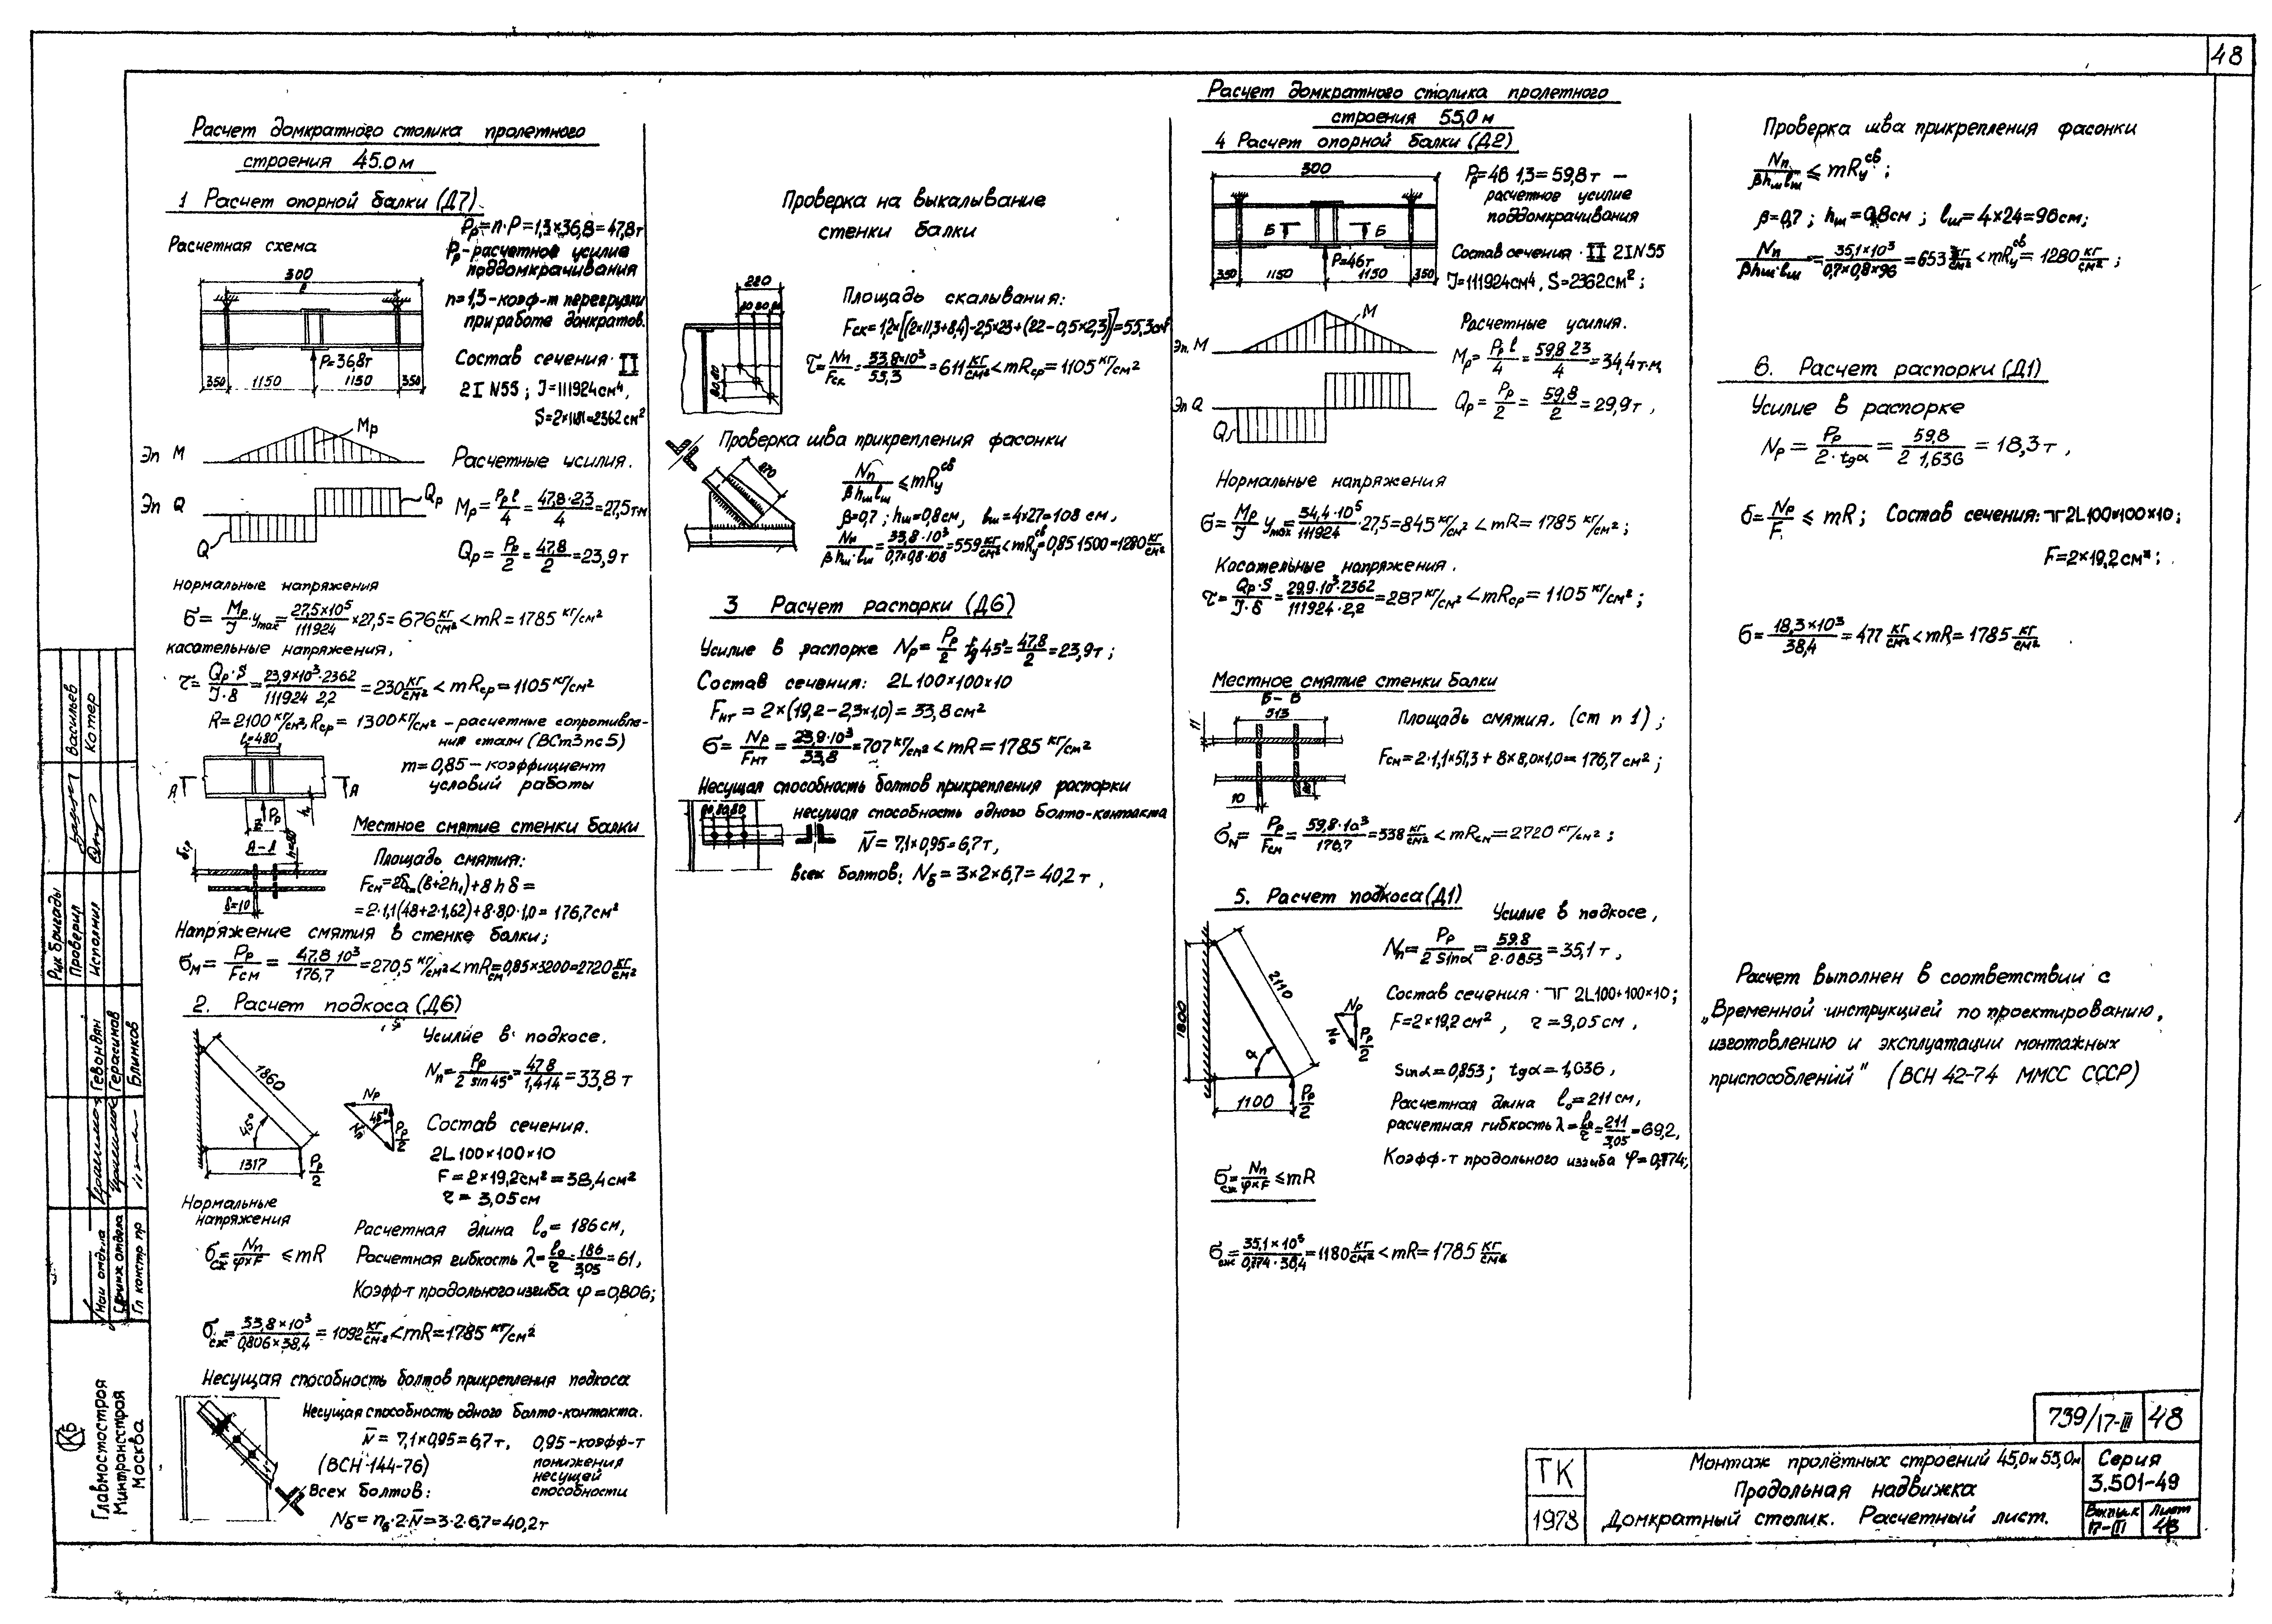 48
Расчет домкратного столика пролетного
строения 45.0м
1 Расчет опорной балки (Д7)
Pр=n·P=1,3×36,8=47,8т
Pр-расчетное усилие
поддомкрачивания
n=1,3-коэф-т перегрузки
при работе домкратов.
Расчетная схема
300
P=36,8т
350 1150 1150 350
Состав сечения·
2I N55; J=111924см⁴,
S=2×1181=2362см²
Эп M
Mр
Расчетные усилия.
Эп Q
Qр
Q
Mр=Pр l/4=47,8·2,3/4=27,5тм
Qр=Pр/2=47,8/2=23,9т
нормальные напряжения
σ=Mр/J·yмах=27,5×10⁵/111924×27,5=676кг/см²<mR=1785 кг/см²
касательные напряжения,
τ=Qр·S/J·δ=23,9×10³·2362/111924 2,2=230кг/см²<mRср=1105 кг/см²
R=2100 кг/см², Rср= 1300 кг/см² – расчетные сопротивле-
ния стали (ВСт3пс5)
m=0,85 – коэффициент
условий работы
l=480
A A
Pр
h₁
Местное смятие стенки балки
А-А
δср
δ=10
Площадь смятия:
Fсм=2δст(в+2h₁)+8hδ=
=2·1,1(48+2·1,62)+8·8,0·1,0= 176,7см²
Напряжение смятия в стенке балки;
σм=Pр/Fсм=47,8 10³/176,7=270,5 кг/см²<mRсм=0,85×3200=2720 кг/см²
2. Расчет подкоса (Д6)
Усилие в подкосе.
Nп=Pр/2 sin45°=47,8/1,414=33,8 т
1860
45°
1317
Pр/2
Nр
45°
Pр/2
Состав сечения.
2L 100×100×10
F=2×19,2см²=38,4см²
r= 3,05см
Нормальные
напряжения
σсж=Nп/φ×F ≤mR
Расчетная длина l₀= 186см,
Расчетная гибкость λ=l₀/r=186/3,05=61,
Коэфф-т продольного изгиба φ=0,806;
σсж=33,8×10³/0,806×38,4=1092кг/см²<mR=1785 кг/см²
Несущая способность болтов прикрепления подкоса
Несущая способность одного болто-контакта.
N̄= 7,1×0,95=6,7т, 0,95-коэфф-т
понижения
несущей
способности
(ВСН-144-76)
Всех болтов:
Nб=nб·2·N̄=3·2·6,7=40,2т
Проверка на выкалывание
стенки балки
220
80 80
Площадь скалывания:
Fск=1,2×[(2×11,3+8,4)-2,5×2,3+(22-0,5×2,3)]=55,3см²
τ=Nп/Fск=33,8×10³/55,3=611 кг/см²<mRср=1105 кг/см²
Проверка шва прикрепления фасонки
270
Nп/βhшlш≤mRусв
β=0,7; hш=0,8см, lш=4×27=108 см,
Nп/βhш·lш=33,8·10³/0,7×0,8·108=559кг/см²<mRусв=0,85 1500=1280 кг/см²
3 Расчет распорки (Д6)
Усилие в распорке Nр=Pр/2 tg45°=47,8/2=23,9т;
Состав сечения: 2L 100×100×10
Fнт=2×(19,2-2,3×1,0)=33,8см²
σ=Nр/Fнт=23,9·10³/33,8=707 кг/см²<mR=1785 кг/см²
Несущая способность болтов прикрепления распорки
несущая способность одного болто-контакта
N̄=7,1×0,95=6,7т,
всех болтов: Nб=3×2×6,7=40,2т,
Расчет домкратного столика пролетного
строения 55,0м
4 Расчет опорной балки (Д2)
300
Pр=46 1,3=59,8т –
расчетное усилие
поддомкрачивания
Б Б
P=46т
350 1150 1150 350
Состав сечения· 2IN55
J=111924см⁴, S=2362см²;
M
Эп. M
Расчетные усилия.
Mр=Pр l/4=59,8 2,3/4=34,4т·м,
Эп Q
Q
Qр=Pр/2=59,8/2=29,9т,
Нормальные напряжения
σ=Mр/J yмах=34,4·10⁵/111924·27,5=845 кг/см²<mR=1785 кг/см²;
Касательные напряжения.
τ=Qр·S/J·δ=29,9·10³·2362/111924·2,2=287 кг/см²<mRср=1105 кг/см²;
Местное смятие стенки балки
Б-Б
513
11
10
Площадь смятия. (см п 1);
Fсм=2·1,1×51,3+8×8,0×1,0=176,7см²;
σм=Pр/Fсм=59,8·10³/176,7=338кг/см²<mRсм=2720 кг/см²;
5. Расчет подкоса (Д1)
Усилие в подкосе,
Nп=Pр/2 sinα=59.8/2·0853=35,1т,
2110
1800
α
1100
Pр/2
Nр
Pр/2
Состав сечения· 2L100×100×10;
F=2×19,2см², r=3,05см,
Sinα=0,853; tgα=1,636,
Расчетная длина l₀=211см,
расчетная гибкость λ=l₀/r=211/3,05=69,2,
Коэфф-т продольного изгиба φ=0,774;
σсж=Nп/φ×F≤mR
σсж=35,1×10³/0,774·38,4=1180кг/см²<mR=1785 кг/см²
Проверка шва прикрепления фасонки
Nп/βhшlш≤mRусв;
β=0,7; hш=0,8см; lш=4×24=96см;
Nп/βhш·lш=35,1×10³/0,7×0,8×96=653 кг/см²<mRусв=1280 кг/см²;
6. Расчет распорки (Д1)
Усилие в распорке
Nр=Pр/2·tgα=59,8/2 1,636=18,3т,
σ=Nр/F≤mR; Состав сечения: 2L100×100×10;
F=2×19,2см²;
σ=18,3×10³/38,4=477 кг/см²<mR=1785 кг/см²
Расчет выполнен в соответствии с
„Временной инструкцией по проектированию,
изготовлению и эксплуатации монтажных
приспособлений" (ВСН 42-74 ММСС СССР)
739/17-III 48
ТК
1978
Монтаж пролётных строений 45,0и 55,0м
Продольная надвижка
Домкратный столик. Расчетный лист.
Серия
3.501-49
Выпуск Лист
17-III 48
Рук бригады Васильев
Проверил Котер
Исполнил
Нач отдела Гевондян
Гл инж отдела Герасимов
Гл констр пр Блинков
Главмостострой
Минтрансстроя
Москва